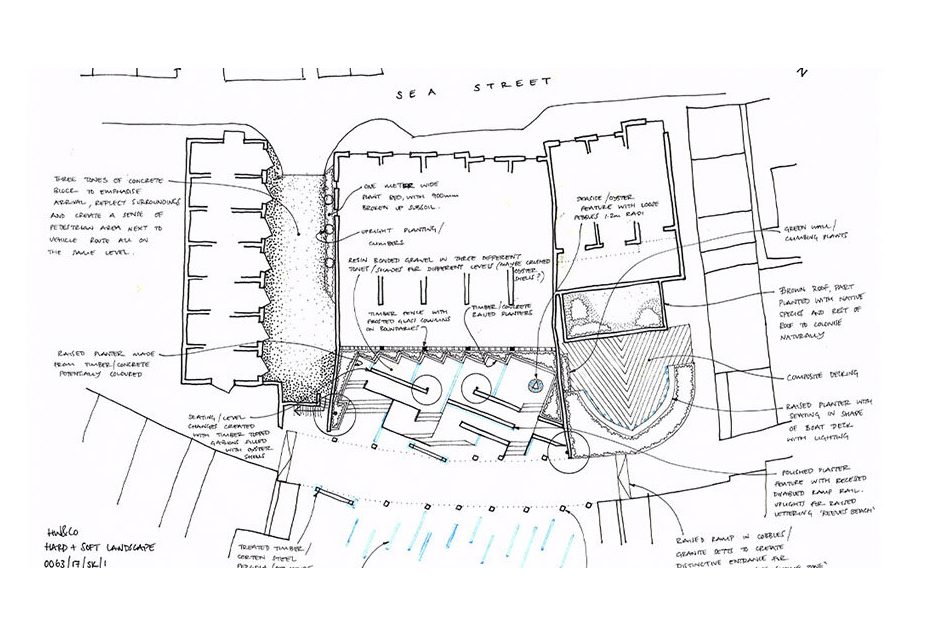 SEA STREET
N
THREE TONES OF CONCRETE
BLOCK TO EMPHASISE
ARRIVAL, REFLECT SURROUNDINGS
AND CREATE A SENSE OF
PEDESTRIAN AREA NEXT TO
VEHICLE ROUTE ALL ON
THE SAME LEVEL.
ONE METER WIDE
PLANT BED, WITH 900mm
BROKEN UP SUBSOIL.
UPRIGHT PLANTING/
CLIMBERS
RESIN BONDED GRAVEL IN THREE DIFFERENT
TONES/SHADES FOR DIFFERENT LEVELS (MAYBE CRUSHED
OYSTER
SHELLS?)
SEASIDE/OYSTER
FEATURE WITH LOOSE
PEBBLES 1.2m RADI
GREEN WALL/
CLIMBING PLANTS
TIMBER FENCE WITH
FROSTED GLASS COLUMNS
ON BOUNDARIES
TIMBER/CONCRETE
RAISED PLANTERS
BROWN ROOF, PART
PLANTED WITH NATIVE
SPECIES AND REST OF
ROOF TO COLONISE
NATURALLY
RAISED PLANTER MADE
FROM TIMBER/CONCRETE
POTENTIALLY COLOURED
COMPOSITE DECKING
RAISED PLANTER WITH
SEATING IN SHAPE
OF BOAT DECK
WITH LIGHTING
SEATING/LEVEL
CHANGES CREATED
WITH TIMBER TOPPED
GABIONS FILLED
WITH OYSTER
SHELLS
POLISHED PLASTER
FEATURE WITH RECESSED
DISABLED RAMP RAIL.
UPLIGHTS FOR RAISED
LETTERING 'REEVES BEACH'
HW&Co
HARD + SOFT LANDSCAPE
0063/17/SK/1
TREATED TIMBER/
CORTEN STEEL
RAISED RAMP IN COBBLES/
GRANITE SETTS TO CREATE
DISTINCTIVE ENTRANCE FOR